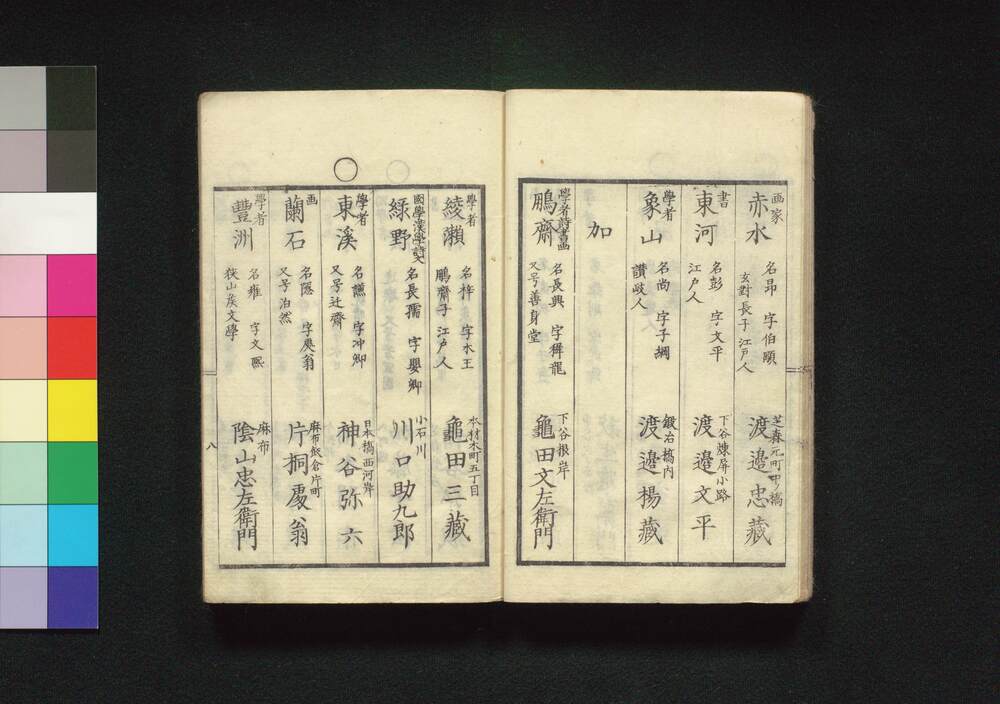 画家
赤水
名昂 字伯頤
玄對長子 江戸人
芝森元町中ノ橋
渡邉忠藏
書
東河
名彭 字文平
江戸人
下谷煉屏小路
渡邉文平
學者
象山
名尚 字子綱
讃岐人
鍛冶橋内
渡邉楊藏
加
學者詩書画
鵬齋
名長興 字穉龍
又号善身堂
下谷根岸
龜田文左衛門
學者
綾瀬
名梓 字木王
鵬齋子 江戸人
本材木町五丁目
龜田三藏
國學漢學詩文
緑野
名長孺 字嬰卿
小石川
川口助九郎
學者
東溪
名讌 字冲卿
又号辻齋
日本橋西河岸
神谷弥六
画
蘭石
名隱 字慶翁
又号泊然
麻布飯倉片町
片桐慶翁
學者
豐洲
名雍 字文熈
狭山矦文學
麻布
陰山忠左衛門
八